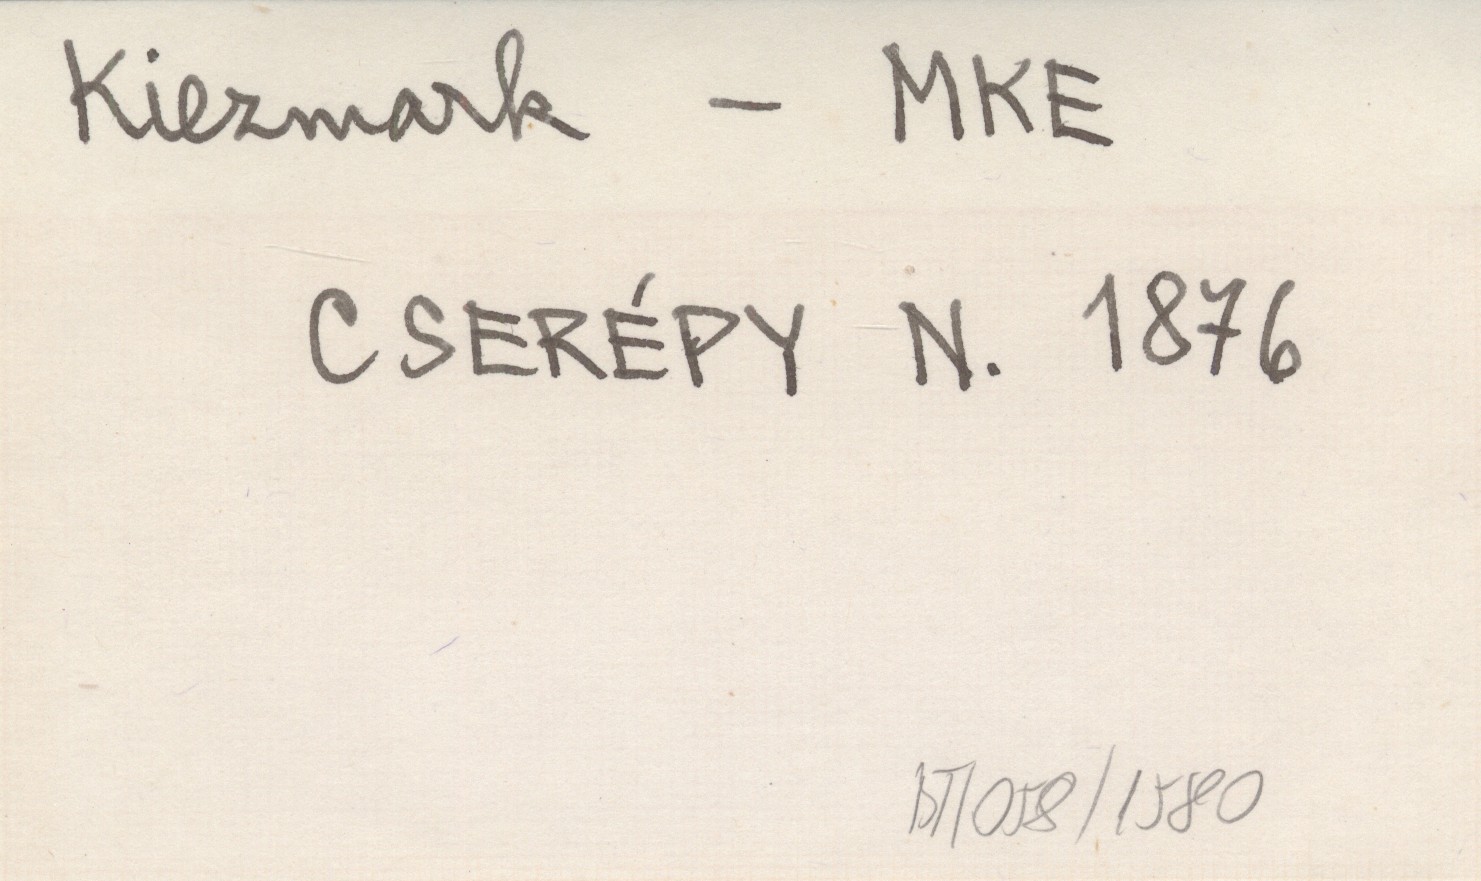 Kiezmark - MKE
CSERÉPY N. 1876
BT/058/1580